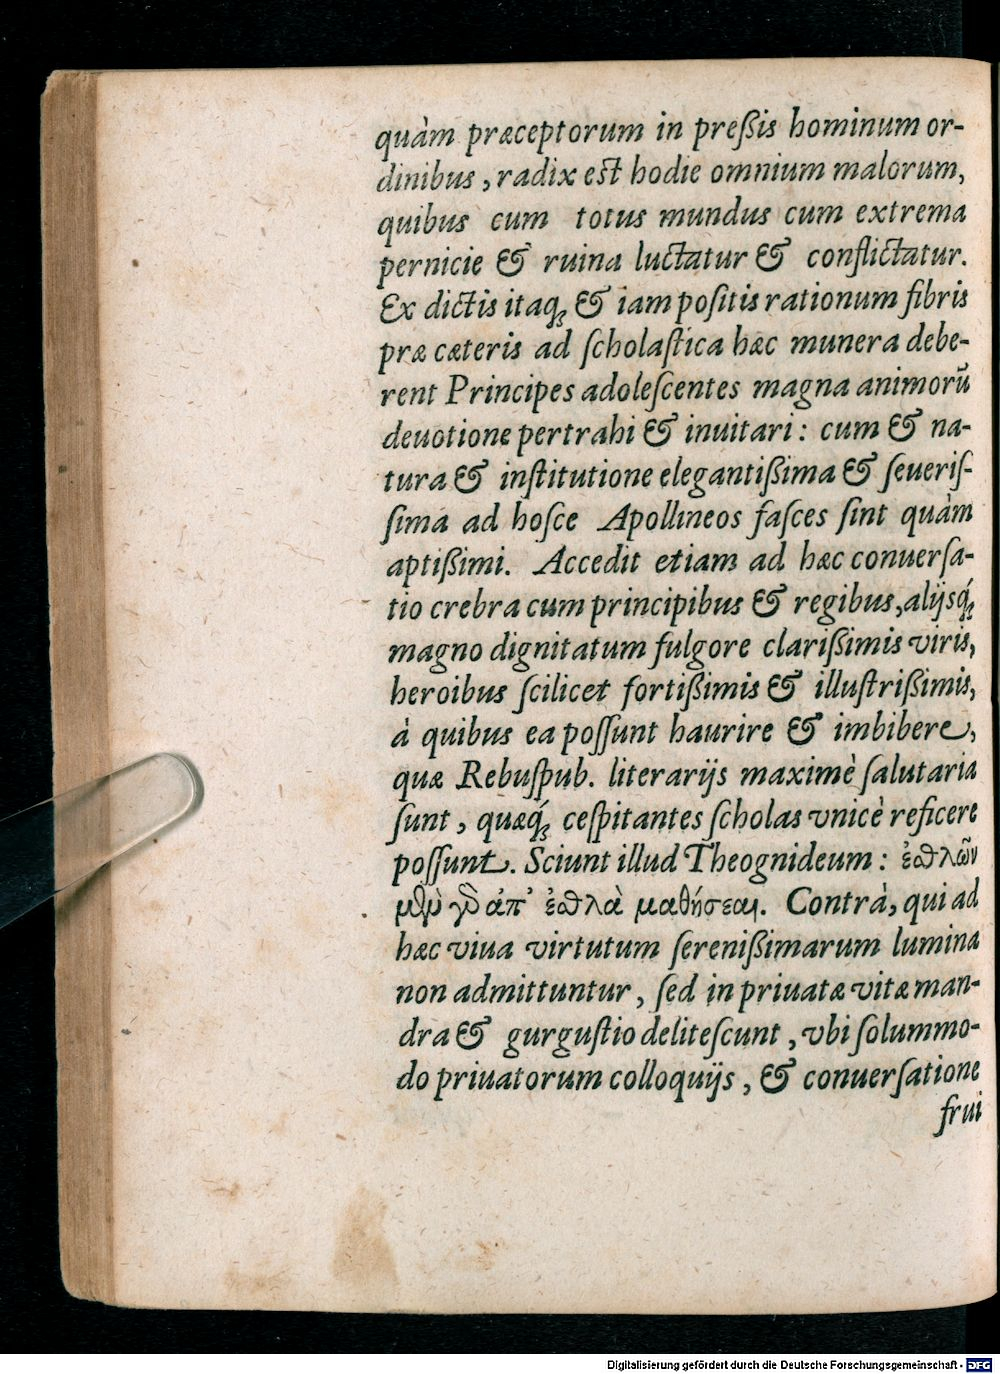 quàm præceptorum in preßis hominum or-
dinibus, radix est hodie omnium malorum,
quibus cum totus mundus cum extrema
pernicie & ruina luctatur & conflictatur.
Ex dictis itaq; & iam poſitis rationum fibris
præ cæteris ad ſcholaſtica hæc munera debe-
rent Principes adoleſcentes magna animorũ
deuotione pertrahi & inuitari: cum & na-
tura & inſtitutione elegantißima & ſeueriſ-
ſima ad hoſce Apollineos faſces ſint quàm
aptißimi. Accedit etiam ad hæc conuerſa-
tio crebra cum principibus & regibus, alijsq́;
magno dignitatum fulgore clarißimis viris,
heroibus ſcilicet fortißimis & illuſtrißimis,
à quibus ea poſſunt haurire & imbibere,
quæ Rebuſpub. literarijs maximè ſalutaria
ſunt, quæq́; ceſpitantes ſcholas vnicè reficere
poſſunt. Sciunt illud Theognideum: ἐσθλῶν
μὲν γὰρ ἀπ' ἐσθλὰ μαθήσεαι. Contrà, qui ad
hæc viua virtutum ſerenißimarum lumina
non admittuntur, ſed in priuatæ vitæ man-
dra & gurguſtio deliteſcunt, vbi ſolummo-
do priuatorum colloquijs, & conuerſatione
frui
Digitalisierung gefördert durch die Deutsche Forschungsgemeinschaft - DFG